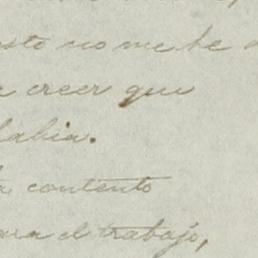 esto no me he
creer que
labia.
contento
para el trabajo,